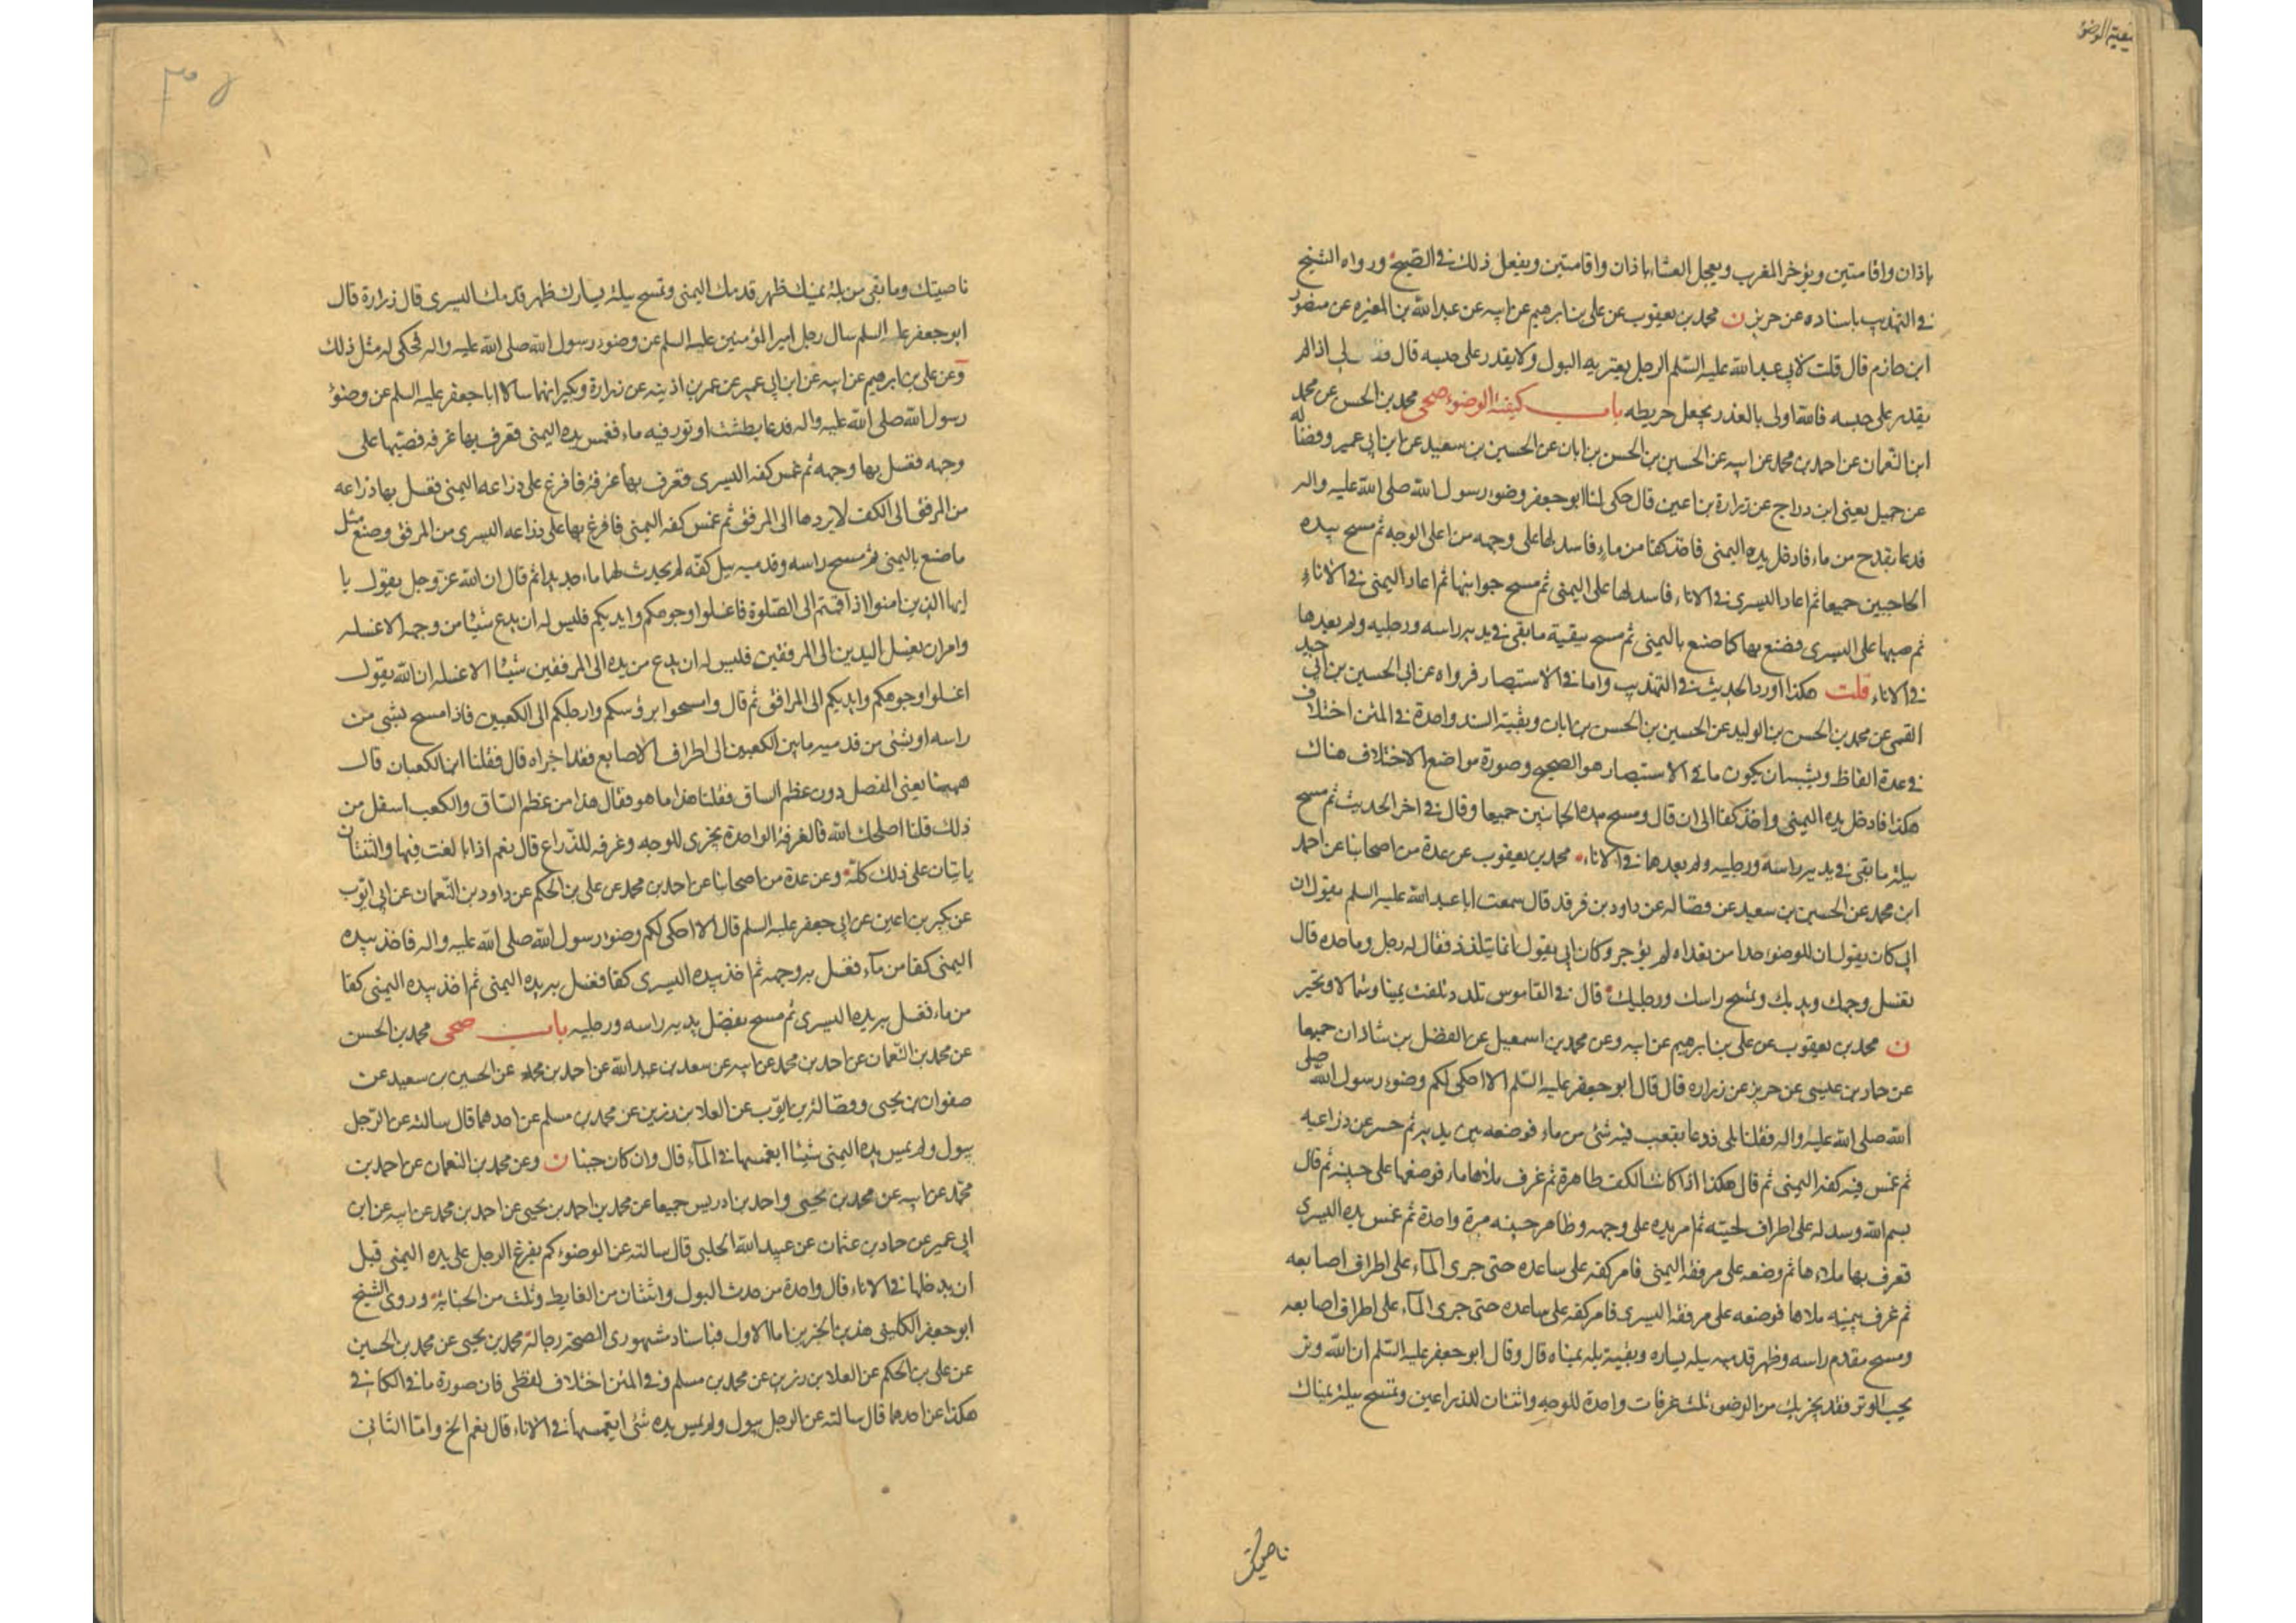 كيفية الوضوء
باذان واقامتين ويؤخر المغرب ويعجل العشاء باذان واقامتين ويفعل ذلك في الصبح ورواه الشيخ
في التهذيب باسناده عن حريز ن محمد بن يعقوب عن علي بن ابرهيم عن ابيه عن عبد الله بن المغيره عن منصور
ابن حازم قال قلت لابي عبد الله عليه السلم الرجل يعتريه البول ولا يقدر على حبسه قال فقال لي اذا لم
يقدر على حبسه فالله اولى بالعذر يجعل خريطه باب كيفية الوضوء صحى محمد بن الحسن عن محمد
ابن النعمان عن احمد بن محمد عن ابيه عن الحسين بن الحسن بن ابان عن الحسين بن سعيد عن ابن ابي عمير وفضاله
عن جميل يعني ابن دراج عن زرارة بن اعين قال حكى لنا ابو جعفر وضوء رسول الله صلى الله عليه واله
فدعا بقدح من ماء فادخل يده اليمنى فاخذ كفا من ماء فاسدلها على وجهه من اعلى الوجه ثم مسح بيده
الحاجبين جميعا ثم اعاد اليسرى في الاناء فاسدلها على اليمنى ثم مسح جوانبها ثم اعاد اليمنى في الاناء
ثم صبها على اليسرى فصنع بها كما صنع باليمنى ثم مسح ببقية ما بقي في يديه راسه ورجليه ولم يعدها
في الاناء قلت هكذا اورد الحديث في التهذيب واما في الاستبصار فرواه عن ابي الحسين بن ابي جيد
القمي عن محمد بن الحسن بن الوليد عن الحسين بن الحسن بن ابان وبقية السند واحدة في المتن اختلاف
في عدة الفاظ ويشبه ان يكون ما في الاستبصار هو الصحيح وصورة مواضع الاختلاف هناك
هكذا فادخل يده اليمنى واخذ كفا الى ان قال ومسح بيده الجانبين جميعا وقال في اخر الحديث ثم مسح
ببلة ما بقي في يديه راسه ورجليه ولم يعدهما في الاناء محمد بن يعقوب عن عدة من اصحابنا عن احمد
ابن محمد عن الحسين بن سعيد عن فضاله عن داود بن فرقد قال سمعت ابا عبد الله عليه السلم يقول ان
ابي كان يقول ان للوضوء حدا من تعداه لم يؤجر وكان ابي يقول انما يتلدد فقال له رجل وما حده قال
تغسل وجهك ويديك وتمسح راسك ورجليك قال في القاموس تلدد تلفت يمينا وشمالا وتحير
ن محمد بن يعقوب عن علي بن ابرهيم عن ابيه وعن محمد بن اسمعيل عن الفضل بن شاذان جميعا
عن حماد بن عيسى عن حريز عن زراره قال قال ابو جعفر عليه السلم الا احكي لكم وضوء رسول الله صلى
الله صلى الله عليه واله فقلنا بلى فدعا بقعب فيه شئ من ماء فوضعه بين يديه ثم حسر عن ذراعيه
ثم غمس فيه كفه اليمنى ثم قال هكذا اذا كانت الكف طاهرة ثم غرف ملاها ماء فوضعها على جبينه ثم قال
بسم الله وسدله على اطراف لحيته ثم امر يده على وجهه وظاهر جبينه مرة واحدة ثم غمس يده اليسرى
فغرف بها ملاءها ثم وضعه على مرفقه اليمنى فامر كفه على ساعده حتى جرى الماء على اطراف اصابعه
ثم غرف بيمينه ملاها فوضعه على مرفقه اليسرى فامر كفه على ساعده حتى جرى الماء على اطراف اصابعه
ومسح مقدم راسه وظهر قدميه ببلة يساره وبقية بلة يمناه قال وقال ابو جعفر عليه السلم ان الله وتر
يحب الوتر فقد يجزيك من الوضوء ثلث غرفات واحدة للوجه واثنتان للذراعين وتمسح ببلة يمناك
ناصيتك
ناصيتك وما بقي من بلة يمينك ظهر قدمك اليمنى وتمسح ببلة يسارك ظهر قدمك اليسرى قال زرارة قال
ابو جعفر عليه السلم سال رجل امير المؤمنين عليه السلم عن وضوء رسول الله صلى الله عليه واله فحكى له مثل ذلك
وعن علي بن ابرهيم عن ابيه عن ابن ابي عمير عن عمر بن اذينه عن زرارة وبكير انهما سالا ابا جعفر عليه السلم عن وضوء
رسول الله صلى الله عليه واله فدعا بطشت او تور فيه ماء فغمس يده اليمنى فغرف بها غرفه فصبها على
وجهه فغسل بها وجهه ثم غمس كفه اليسرى فغرف بها غرفة فافرغ على ذراعه اليمنى فغسل بها ذراعه
من المرفق الى الكف لا يردها الى المرفق ثم غمس كفه اليمنى فافرغ بها على ذراعه اليسرى من المرفق وصنع مثل
ما صنع باليمنى ثم مسح راسه وقدميه ببلل كفه لم يحدث لهما ماء جديدا ثم قال ان الله عز وجل يقول يا
ايها الذين امنوا اذا قمتم الى الصلوة فاغسلوا وجوهكم وايديكم فليس له ان يدع شيئا من وجهه الا غسله
وامر ان يغسل اليدين الى المرفقين فليس له ان يدع من يده الى المرفقين شيئا الا غسله ان الله يقول
اغسلوا وجوهكم وايديكم الى المرافق ثم قال وامسحوا برؤسكم وارجلكم الى الكعبين فاذا مسح بشئ من
راسه او بشئ من قدميه ما بين الكعبين الى اطراف الاصابع فقد اجزاه قال فقلنا اين الكعبان قال
ههنا يعني المفصل دون عظم الساق فقلنا هذا ما هو فقال هذا من عظم الساق والكعب اسفل من
ذلك قلنا اصلحك الله فالغرفة الواحدة تجزى للوجه وغرفه للذراع قال نعم اذا بالغت فيها والثنتان
ياتيان على ذلك كله وعن عدة من اصحابنا عن احمد بن محمد عن علي بن الحكم عن داود بن النعمان عن ابي ايوب
عن بكير بن اعين عن ابي جعفر عليه السلم قال الا احكي لكم وضوء رسول الله صلى الله عليه واله فاخذ بيده
اليمنى كفا من ماء فغسل به وجهه ثم اخذ بيده اليسرى كفا فغسل به يده اليمنى ثم اخذ بيده اليمنى كفا
من ماء فغسل به يده اليسرى ثم مسح بفضل يديه راسه ورجليه باب صحى محمد بن الحسن
عن محمد بن النعمان عن احمد بن محمد عن ابيه عن سعد بن عبد الله عن احمد بن محمد عن الحسين بن سعيد عن
صفوان بن يحيى وفضالة بن ايوب عن العلا بن رزين عن محمد بن مسلم عن احدهما قال سالته عن الرجل
يبول ولم يمس يده اليمنى شيئا ايغمسها في الماء قال وان كان جنبا ن وعن محمد بن النعمان عن احمد بن
محمد عن ابيه عن محمد بن يحيى واحمد بن ادريس جميعا عن محمد بن احمد بن يحيى عن احمد بن محمد عن ابيه عن ابن
ابي عمير عن حماد بن عثمان عن عبيد الله الحلبي قال سالته عن الوضوء كم يفرغ الرجل على يده اليمنى قبل
ان يدخلها في الاناء قال واحدة من حدث البول واثنتان من الغايط وثلث من الجنابة وروى الشيخ
ابو جعفر الكليني هذين الخبرين اما الاول فباسناد مشهوري الصحة رجاله محمد بن يحيى عن محمد بن الحسين
عن علي بن الحكم عن العلا بن رزين عن محمد بن مسلم وفي المتن اختلاف لفظي فان صورة ما في الكافي
هكذا عن احدهما قال سالته عن الرجل يبول ولم يمس يده شئ ايغمسها في الاناء قال نعم الخ واما الثاني